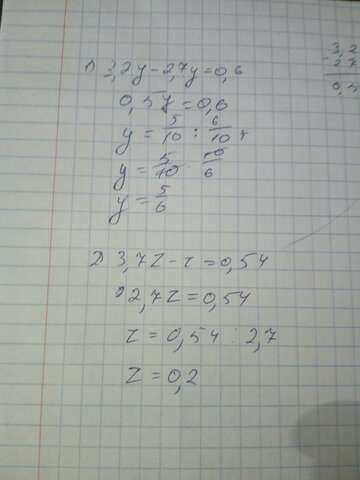 1) 3,2y - 2,7y = 0,6
3,2
- 2,7
0,5
0,5y = 0,6
y = 5/10 : 6/10
y = 5/10 · 10/6
y = 5/6
2) 3,7z - z = 0,54
2,7z = 0,54
z = 0,54 : 2,7
z = 0,2